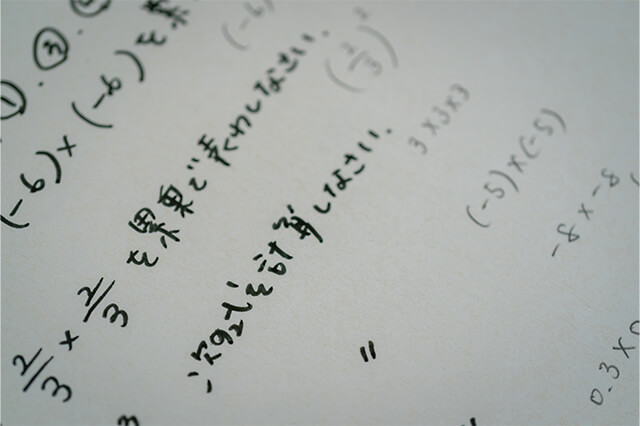 ① . ③ .
(-6)×(-6)を
(-6)
2/3 × 2/3 を累乗で表わしなさい.
(2/3)²
次の式を計算しなさい.
3×3×3
〃
(-5)×(-5)
-8×-8
0.3×0